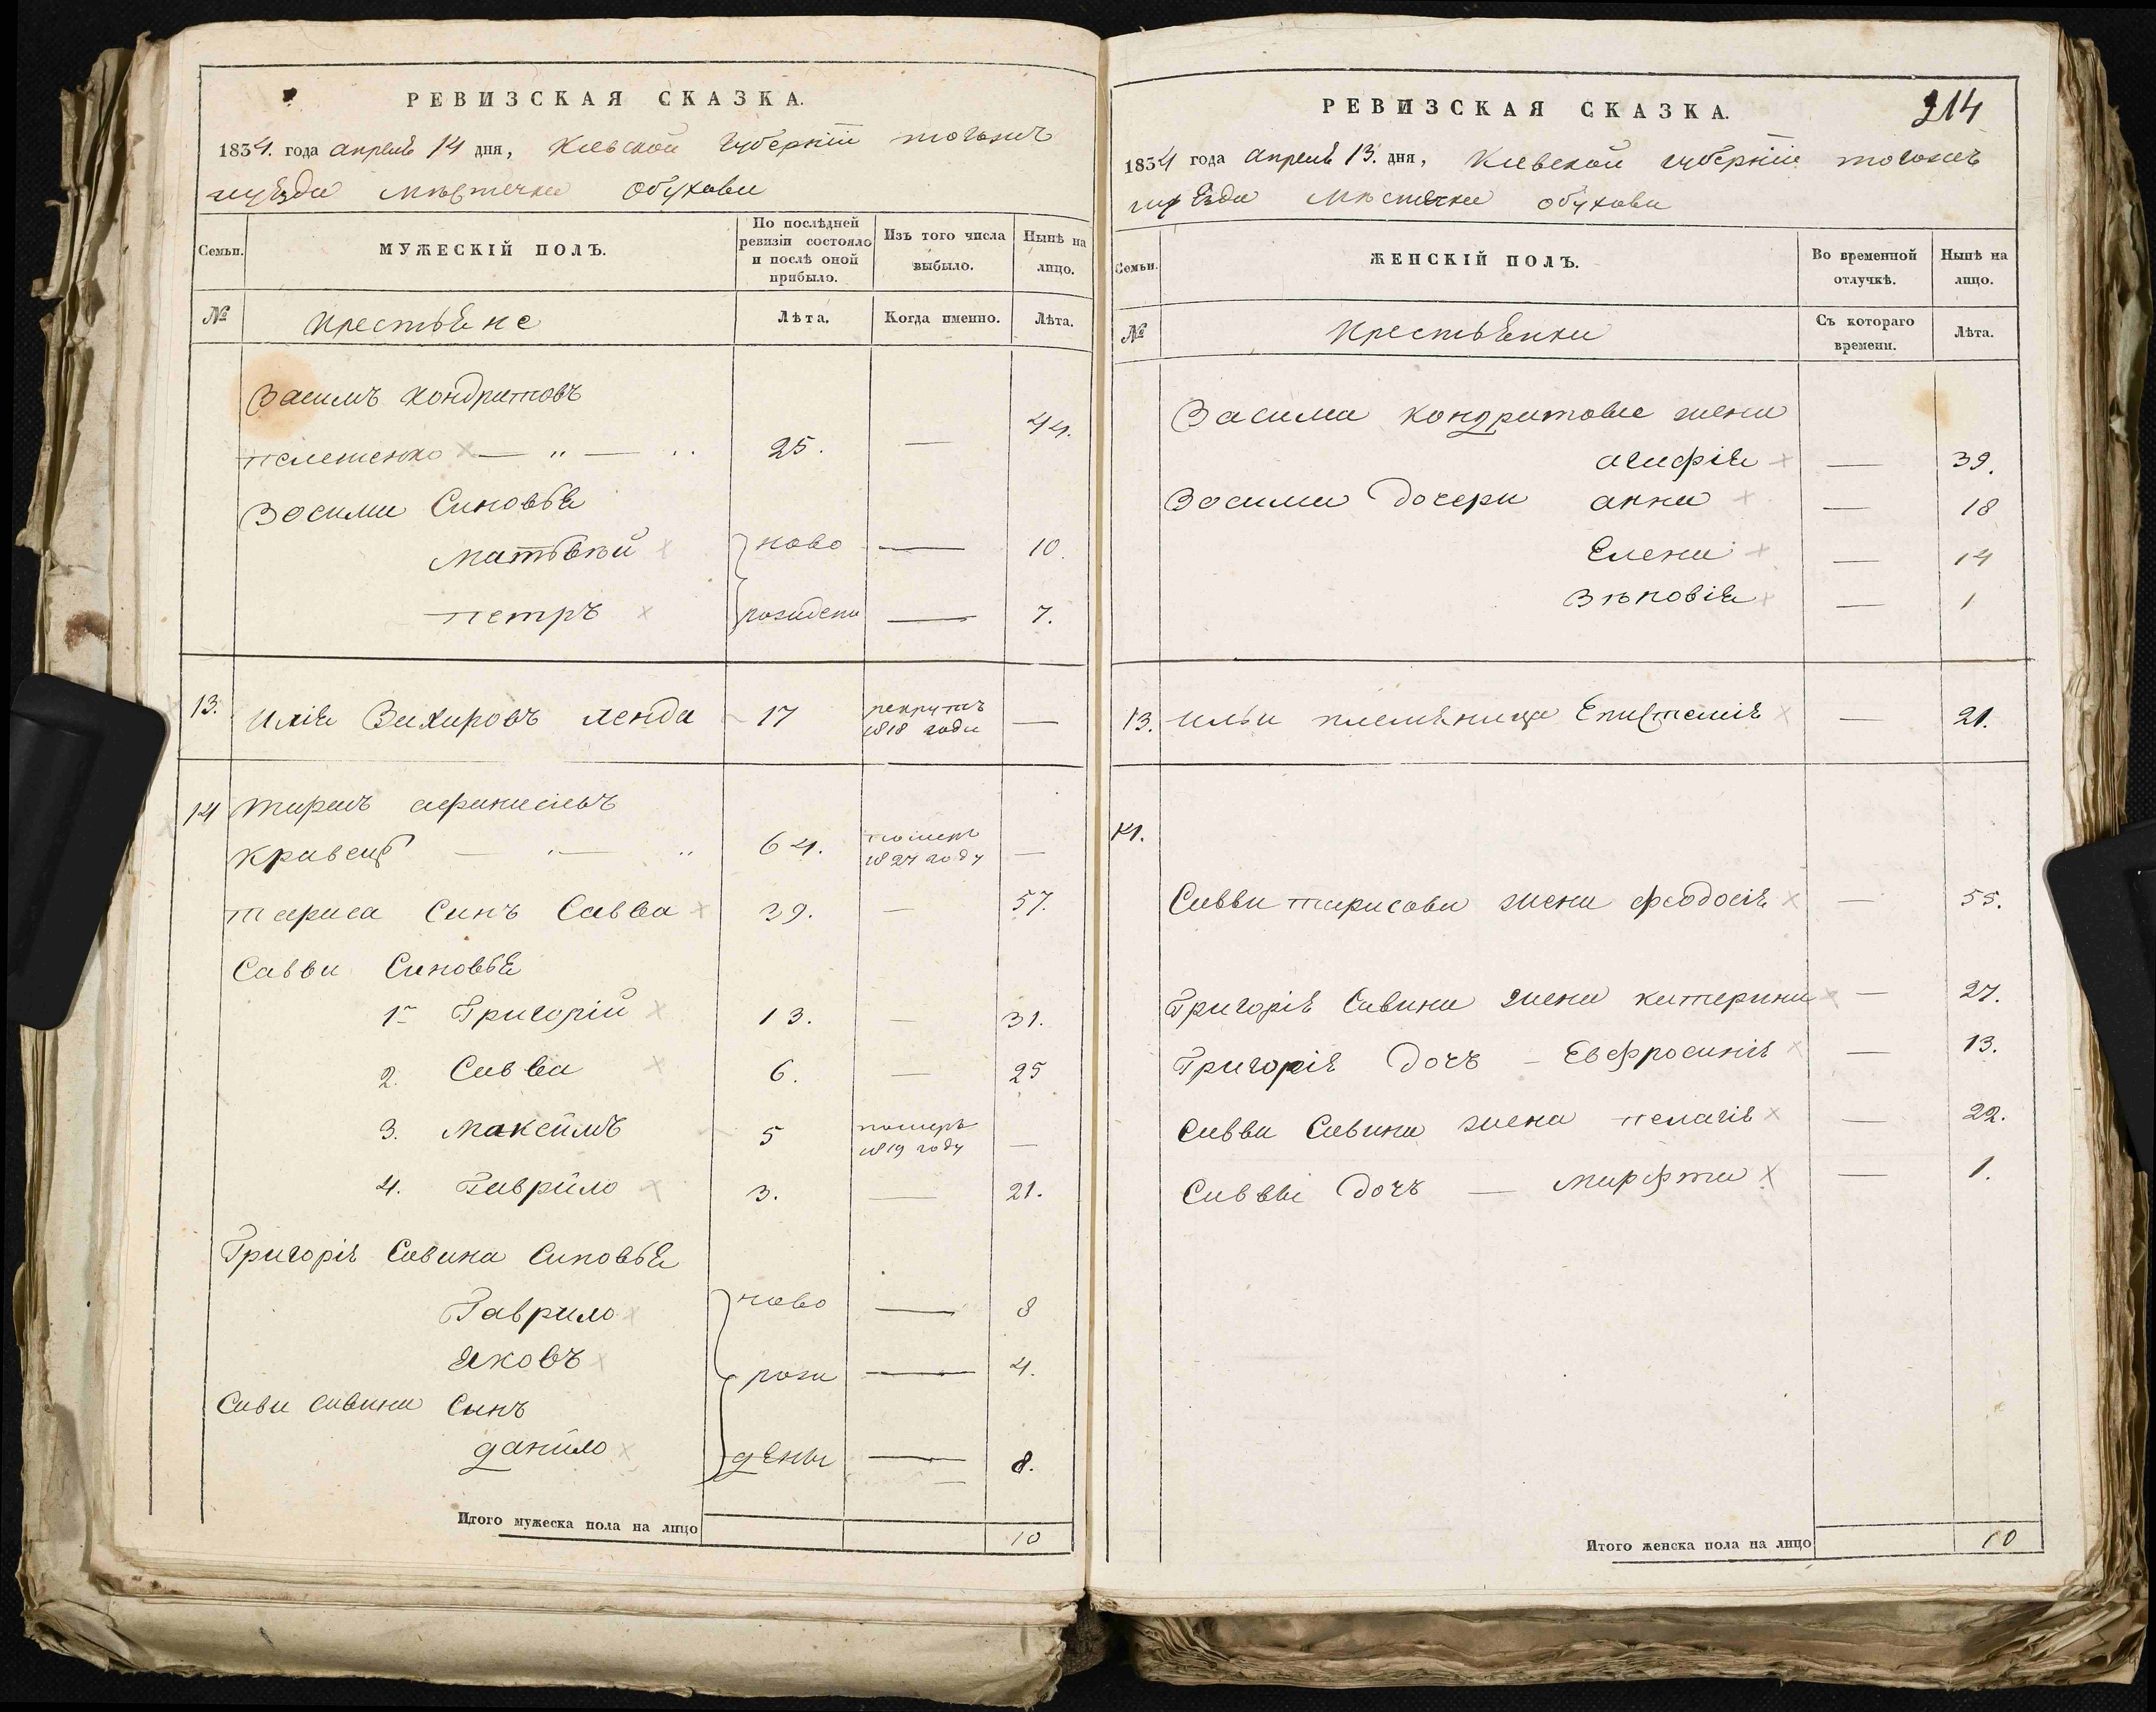 РЕВИЗСКАЯ СКАЗКА.
1834. года апреля 14 дня, Киевской губернии тогожъ
уѣзда мѣстечка обухова
Семьи.
МУЖЕСКІЙ ПОЛЪ.
По послѣдней ревизіи состояло и послѣ оной прибыло.
Изъ того числа выбыло.
Нынѣ на лицо.
№
Крестьяне
Лѣта.
Когда именно.
Лѣта.
Василь Кондратовъ
25. — 44.
Васили Синовья
Матвѣй ново — 10.
петръ рождени — 7.
13. Илія Захаровъ ленда 17 рекрутъ 1818 года —
14 тарасъ афанасіевъ
кравецъ — „ — „ 64. померъ 1827 году —
тараса Синъ Савва 39. — 57.
Савви Синовья
1й Григорій 13. — 31.
2. Савва 6. — 25
3. Максимъ 5 померъ 1819 году —
4. Гаврило 3. — 21.
Григорія Савина Синовья
Гаврило ново — 8
Яковъ рож — 4.
Сави савина Сынъ
данило дены — 8.
Итого мужеска пола на лицо 10
РЕВИЗСКАЯ СКАЗКА.
214
1834 года апреля 13. дня, Киевской губерніи тогожъ
уѣзда мѣстечка обухова
Семьи.
ЖЕНСКІЙ ПОЛЪ.
Во временной отлучкѣ.
Нынѣ на лицо.
№
Крестьянки
Съ котораго времени.
Лѣта.
Васили кондратова жена
агафія — 39.
Васили дочери анна — 18
Елена — 14
Зѣновія — 1
13. Ильи племяница Епистемія — 21.
14.
Савви тарасова жена феодосія — 55.
Григорія Савина жена катерина — 27.
Григорія дочъ — Евфросинія — 13.
Савви Савина жена пелагія — 22.
Савви дочъ — марфта — 1.
Итого женска пола на лицо 10